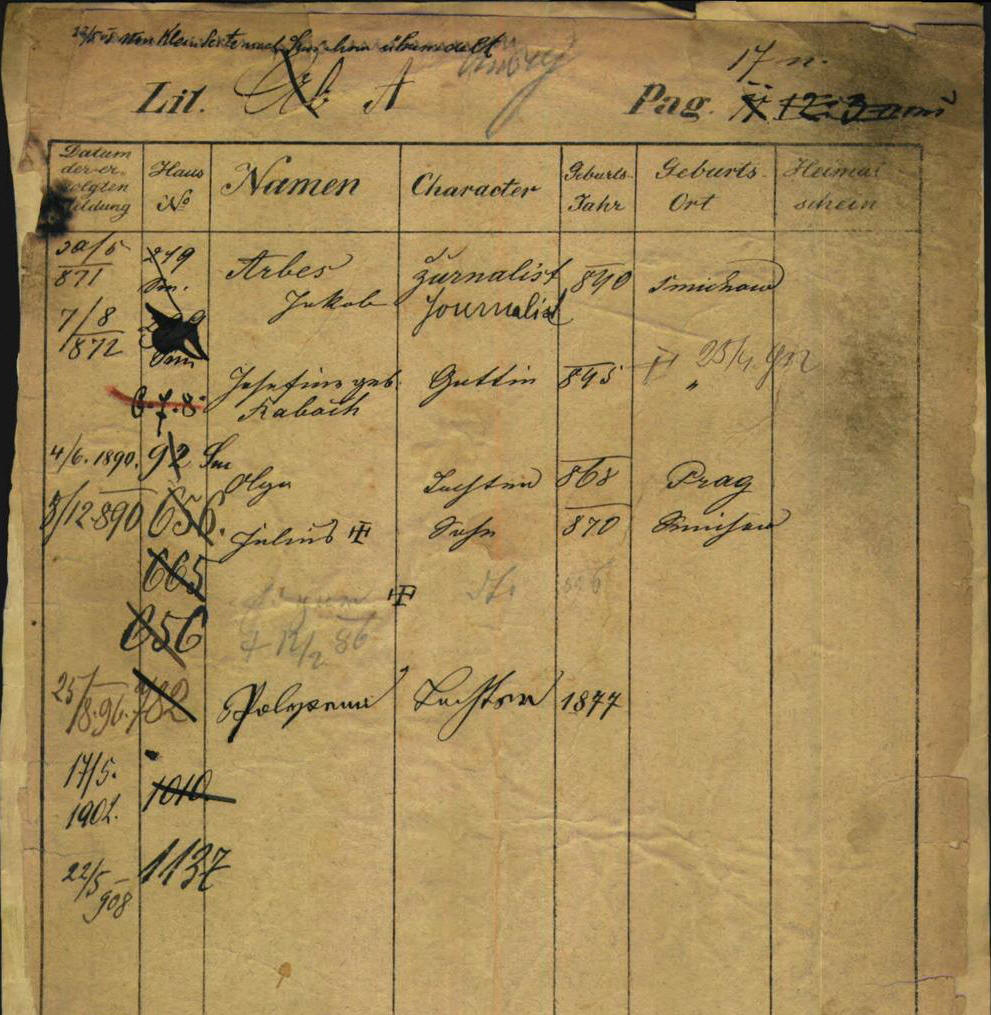 von Kleinseite nach Smichow übersiedelt
Lit. Ab A
Pag. 17
Datum der er- folgten Meldung
Haus No
Namen
Character
Geburts- Jahr
Geburts- Ort
Heimat schein
30/5 871 219 Sm. Arbes Jakob žurnalist Journalist 840 Smichow
7/8 872 Sm
Josefine geb. Raboch Gattin 845 " 25/4
6.7.8.
4/6. 1890. 92 Sm Olga Tochter 868 Prag
3/12 890 656. Julius Sohn 870 Smichow
665
656
† 12/2 86
25/8. 96. 782 Polyxena Tochter 1877
17/5. 1902. 1010
22/5 908 1137